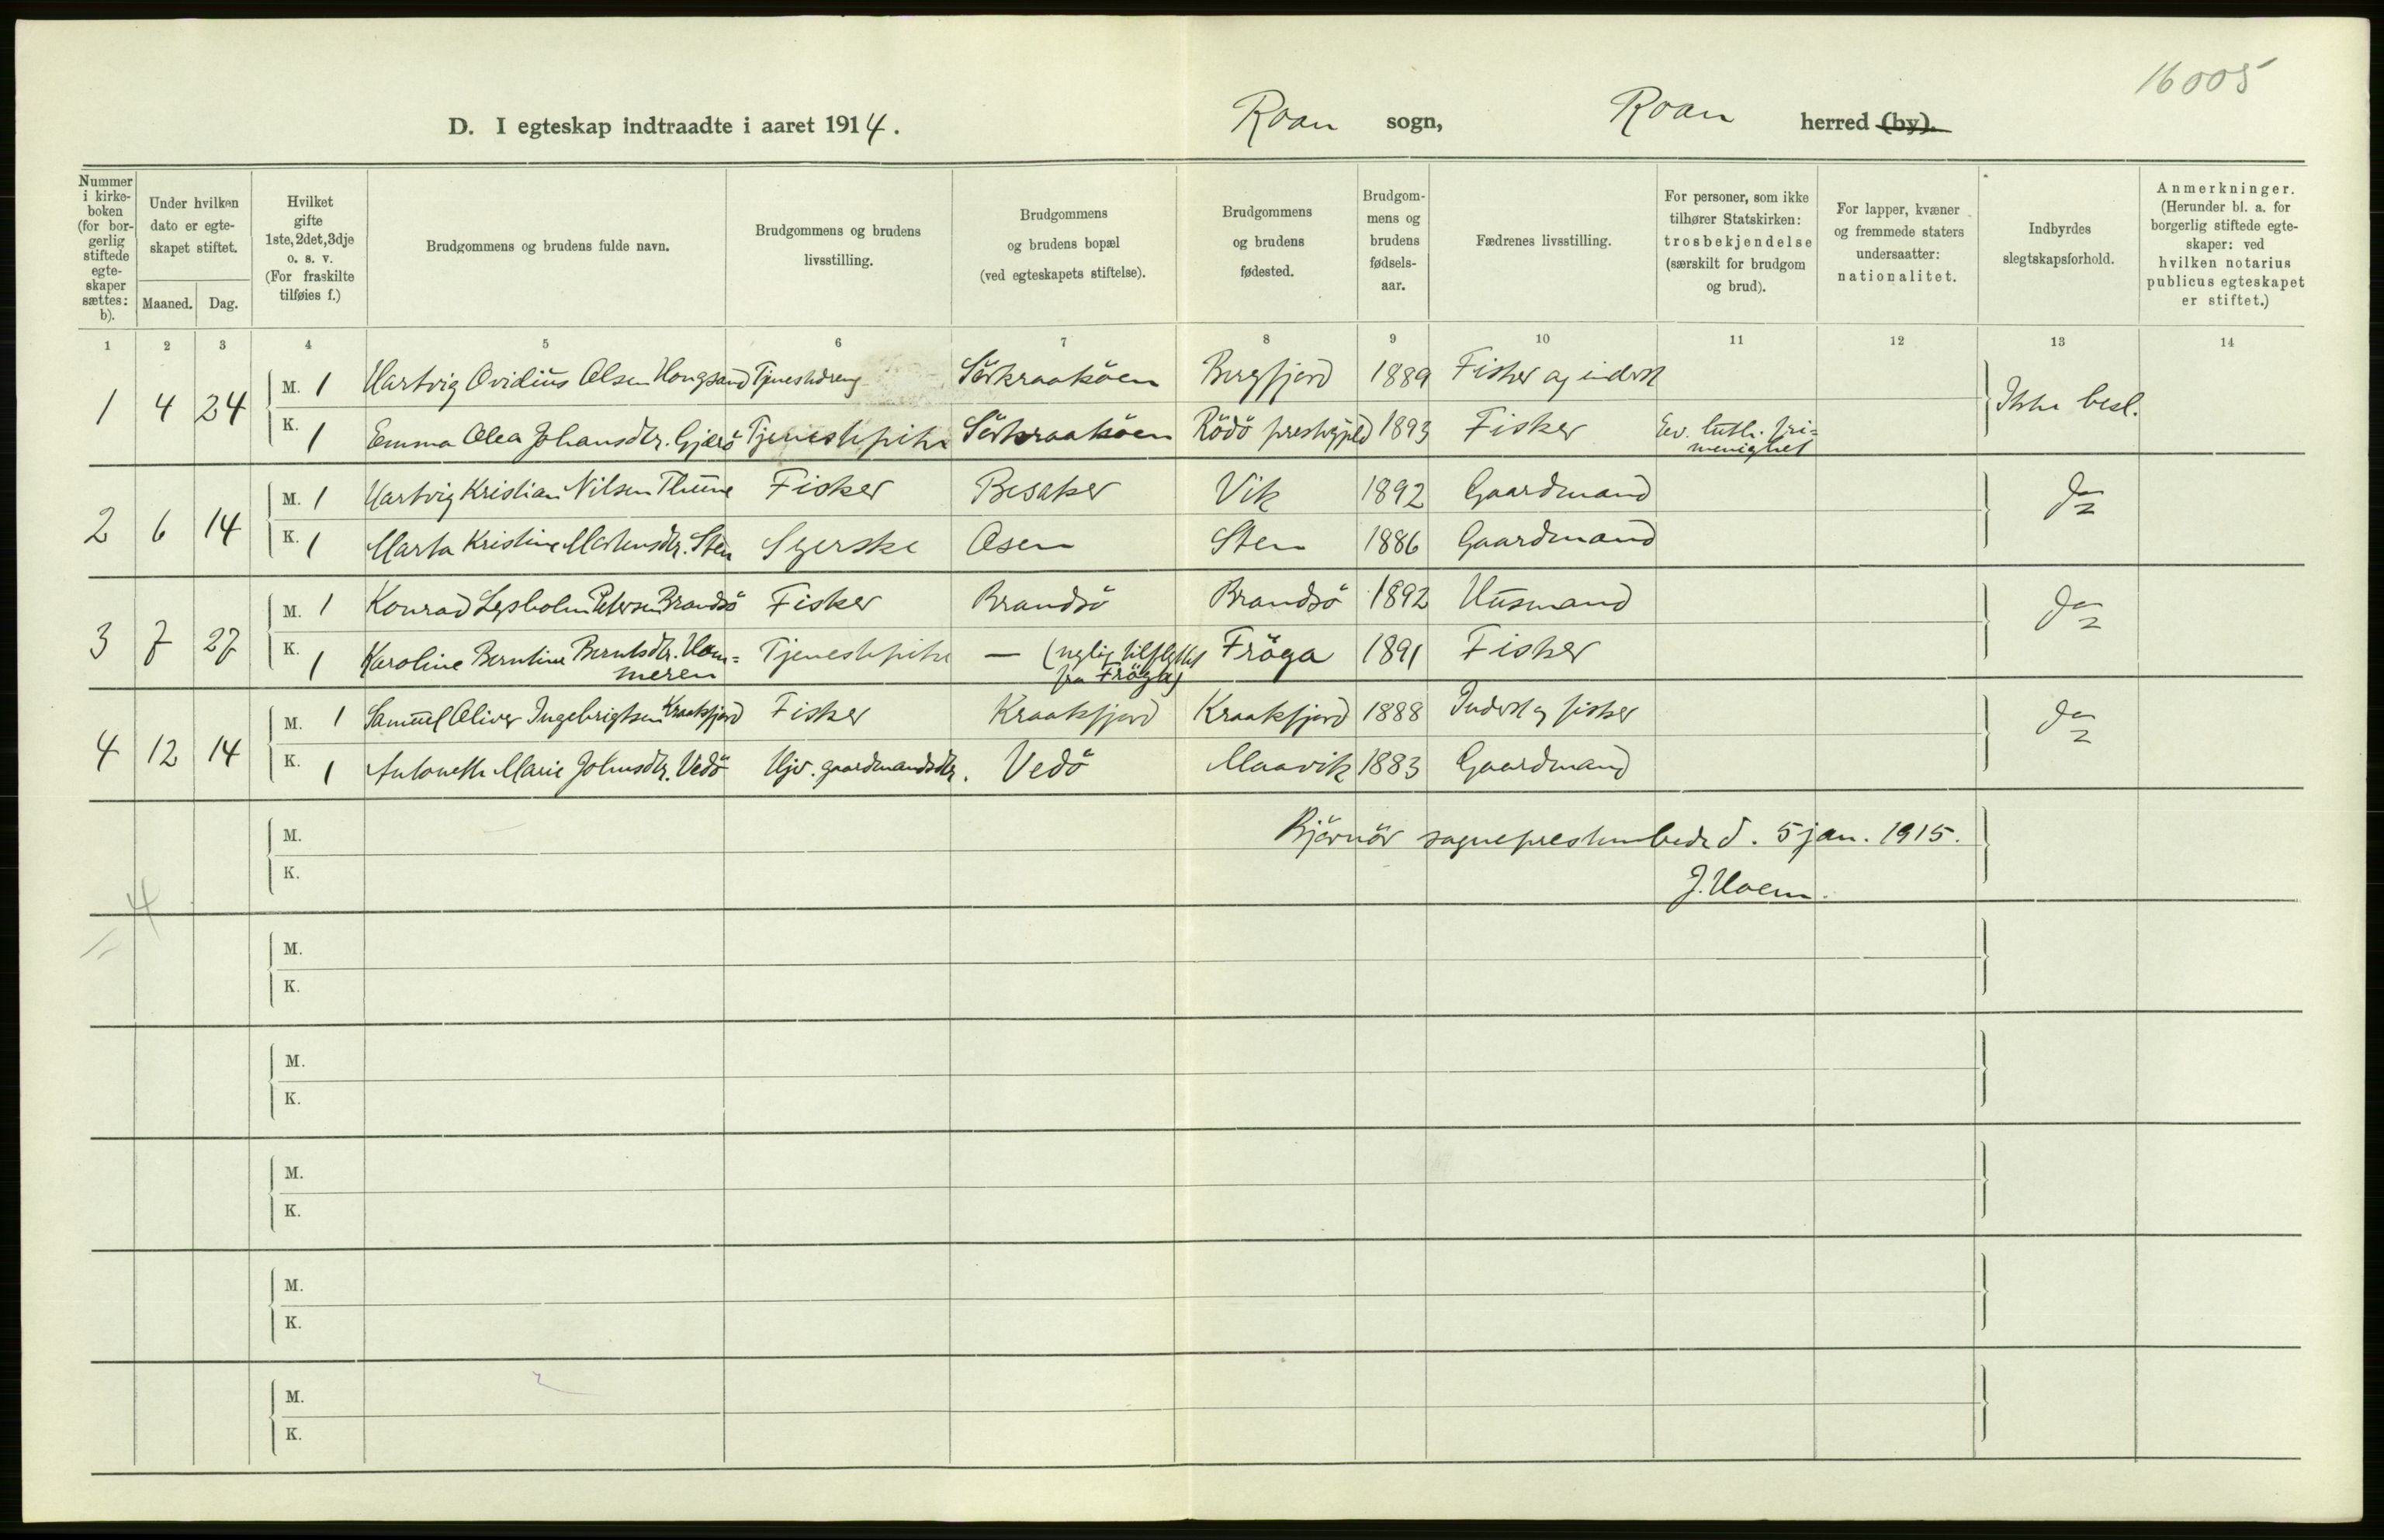 16005
D. I egteskap indtraadte i aaret 1914. Roan sogn, Roan herred (by).
Nummer i kirkeboken (for borgerlig stiftede egteskaper sættes: b).
Under hvilken dato er egteskapet stiftet.
Maaned. Dag.
Hvilket gifte 1ste, 2det, 3dje o. s. v. (For fraskilte tilføies f.)
Brudgommens og brudens fulde navn.
Brudgommens og brudens livsstilling.
Brudgommens og brudens bopæl (ved egteskapets stiftelse).
Brudgommens og brudens fødested.
Brudgommens og brudens fødselsaar.
Fædrenes livsstilling.
For personer, som ikke tilhører Statskirken: trosbekjendelse (særskilt for brudgom og brud).
For lapper, kvæner og fremmede staters undersaatter: nationalitet.
Indbyrdes slegtskapsforhold.
Anmerkninger. (Herunder bl. a. for borgerlig stiftede egteskaper: ved hvilken notarius publicus egteskapet er stiftet.)
1 2 3 4 5 6 7 8 9 10 11 12 13 14
1 4 24 M. 1 Hartvig Ovidius Olsen Hongsand Tjenestedreng Sörkraaköen Bergfjord 1889 Fisker og inderst Ikke besl.
K. 1 Emma Olea Johansdtr. Gjærö Tjenestepike Sörkraaköen Rödö prestegjeld 1893 Fisker Ev. luth. fri=
menighet
2 6 14 M. 1 Hartvig Kristian Nilsen Thune Fisker Besaker Vik 1892 Gaardmand Do
K. 1 Marta Kristine Mortensdtr. Sten Syerske Osen Sten 1886 Gaardmand
3 7 27 M. 1 Konrad Lysholm Petersen Brandsö Fisker Brandsö Brandsö 1892 Husmand Do
K. 1 Karoline Berntine Berntsdtr. Ham=
meren Tjenestepike — (nylig tilflyttet
fra Fröya) Fröya 1891 Fisker
4 12 14 M. 1 Samuel Oliver Ingebrigtsen Kraakfjord Fisker Kraakfjord Kraakfjord 1888 Inderst og fisker Do
K. 1 Antonette Marie Johnsdtr. Vedö Hjv. gaardmandsdtr. Vedö Maavik 1883 Gaardmand
M. Björnör sogneprestembede d. 5 jan. 1915.
K. J. Hoem.
4
M.
K.
M.
K.
M.
K.
M.
K.
M.
K.